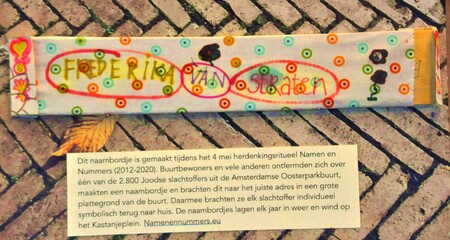 FREDERIKA VAN Straten
Dit naambordje is gemaakt tijdens het 4 mei herdenkingsritueel Namen en
Nummers (2012-2020). Buurtbewoners en vele anderen ontfermden zich over
één van de 2.800 Joodse slachtoffers uit de Amsterdamse Oosterparkbuurt,
maakten een naambordje en brachten dit naar het juiste adres in een grote
plattegrond van de buurt. Daarmee brachten ze elk slachtoffer individueel
symbolisch terug naar huis. De naambordjes lagen elk jaar in weer en wind op
het Kastanjeplein. Namenennummers.eu